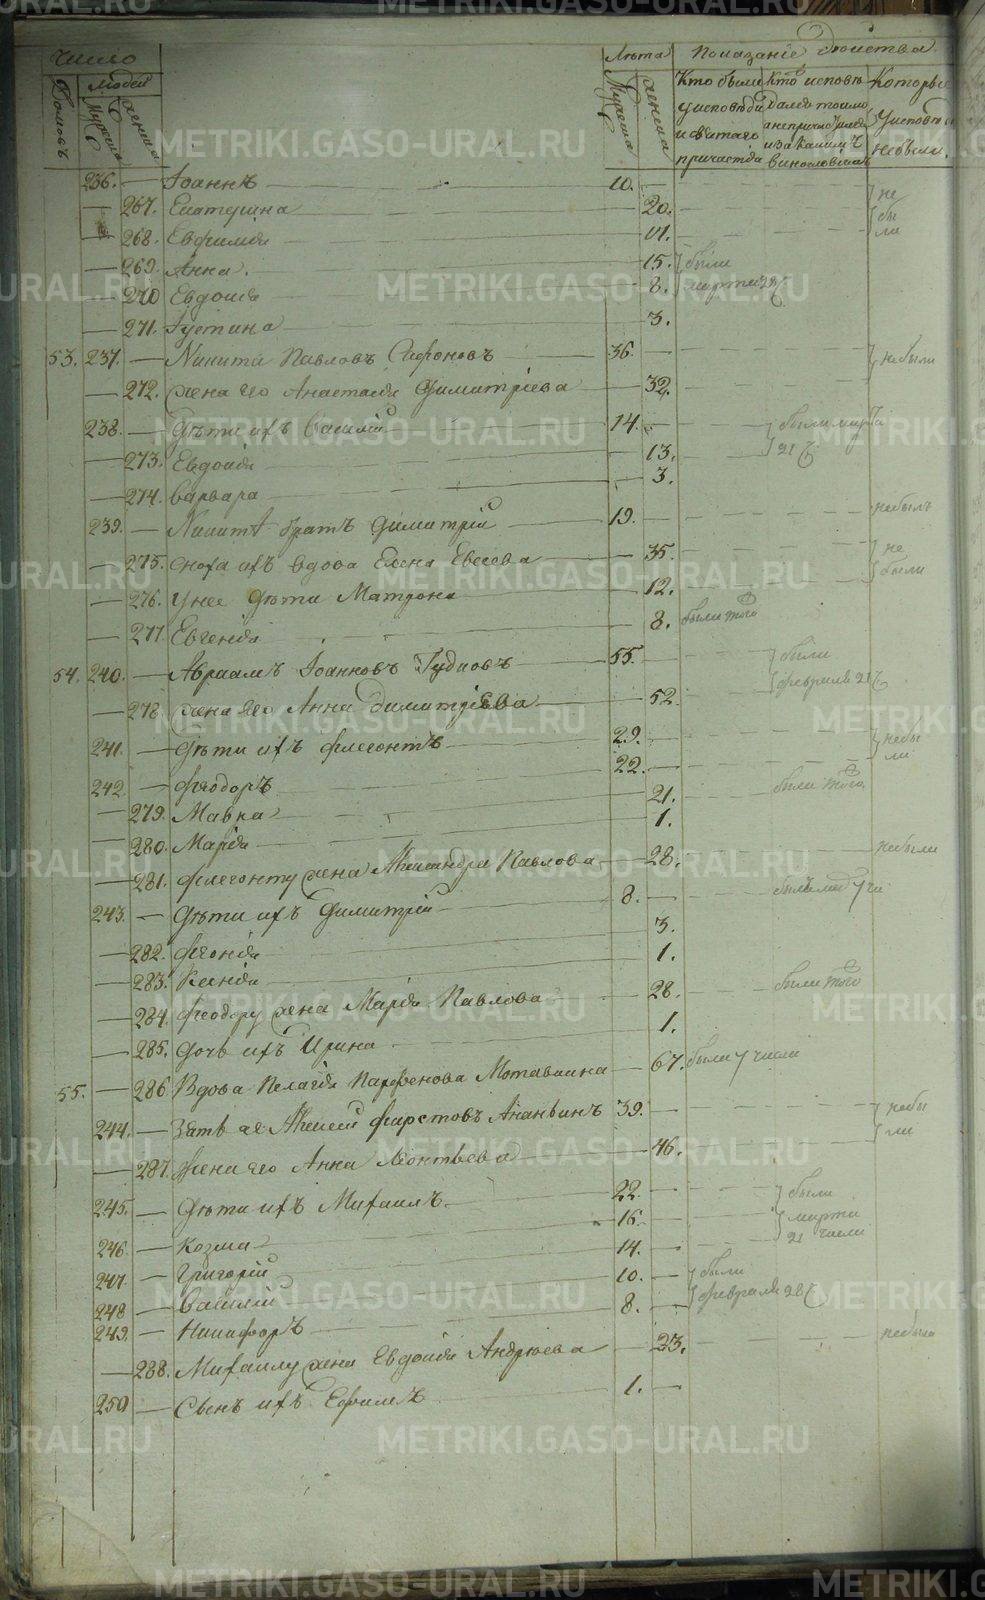 Число Лѣта Показаніе Двойства
Людей
Домовъ Мужеска Женска Мужеска Женска
Кто были у исповѣди и святаго причастія
Кто исповѣдался токмо а не причастился и за какимъ винословіемъ
Которые у исповѣди не были.
236. — Іоаннъ 10. не
— 267. Екатерина 20. бы
— 268. Евфимія 01. ли
— 269. Анна. 15. были
— 270 Евдокія 8. марта 28
— 271. Іустина 3.
53. 237. — Никита Павловъ Сафоновъ 36. — небыли
— 272. жена его Анастасія Димитріева 32.
238. — Дѣти ихъ Василій 14. были марта
— 273. Евдокія 13. 21
— 274. Варвара 3.
239. — Никитѣ братъ Димитрій 19. небылъ
— 275. сноха ихъ вдова Елена Евсеева 35. не
— 276. У нее дѣти Матрона 12. были
— 277. Евгенія 8. были того
54. 240. — Авраамъ Іоанновъ Гудковъ 55. были
— 278. жена его Анна Димитріева 52. февраля 21
241. — Дѣти ихъ Флегонтъ 29. небы
242. — Феодоръ 22. ли
— 279. Мавка 21. были того
— 280. Марія 1.
— 281. Флегонту жена Александра Павлова 28. небыли
243. — Дѣти ихъ Димитрій 8.
— 282. Фгонія 3.
— 283. Ксенія 1.
— 284. Феодору жена Марія Павлова 28. были того
— 285. Дочь ихъ Ирина 1.
55. — 286 Вдова Пелагія Парфенова Мотавкина 67. были 7 числа
244. — Зять ее Алексей Фирстовъ Ананьинъ 39. небы
— 287. Жена его Анна Леонтьева 46. ли
245. — Дѣти ихъ Михаилъ 22. были
246. — Козма 16. марта
247. — Григорій 14. 21 числа
248 — Василій 10. были
249. — Никифоръ 8. февраля 28
— 288. Михаилу жена Евдокія Андрюева 23. небыла
250 — Сынъ ихъ Ефимъ 1.
METRIKI.GASO-URAL.RU